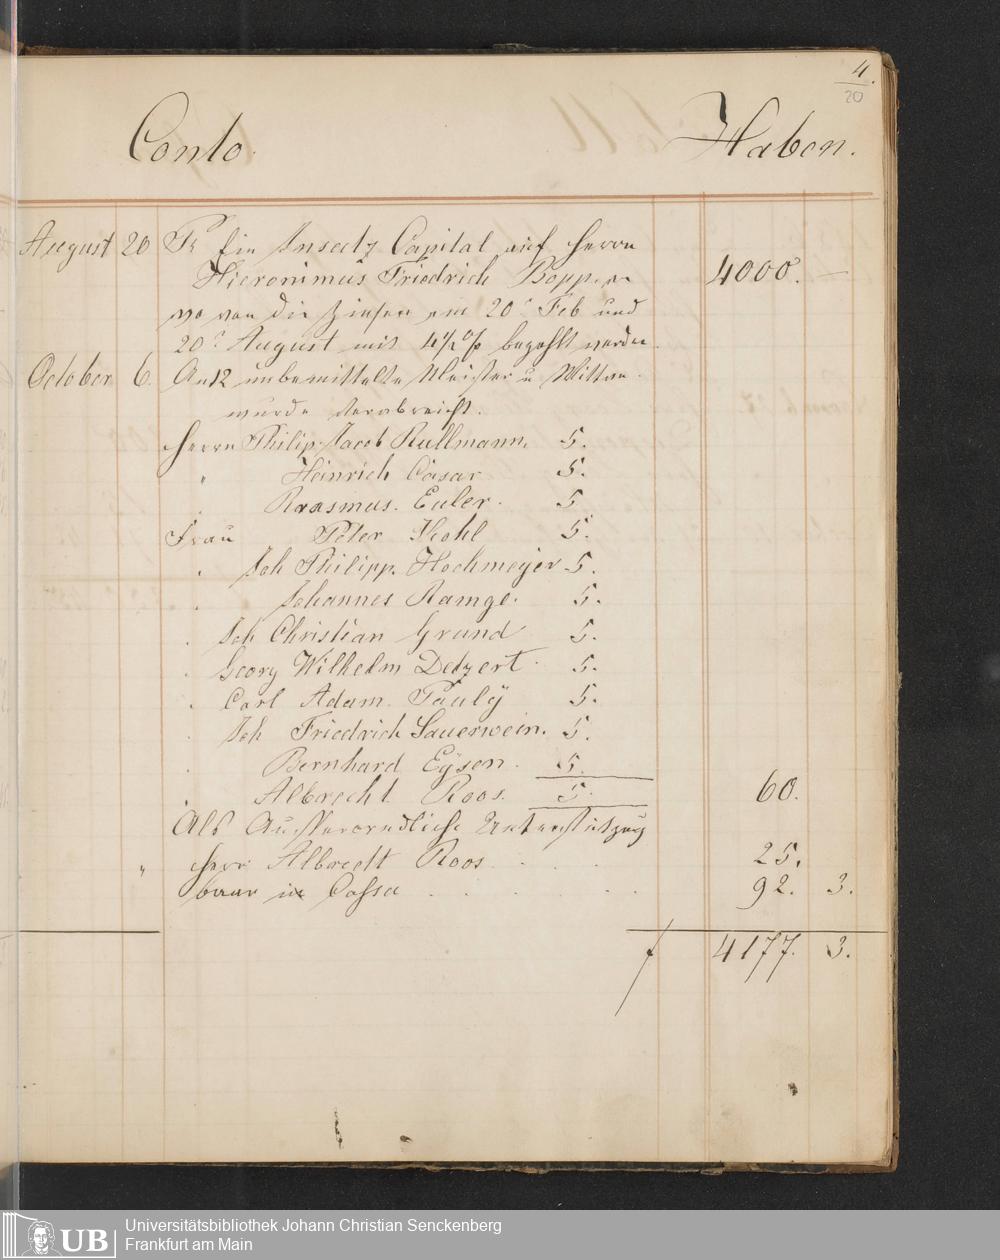 4.
20
Conto. Haben.
August 20 Pr Ein Insatz Capital auf Herrn
Hieronimus Friedrich Popp 4000. —
wo von die Zinsen am 20t Feb und
20t August mit 4½ % bezahlt werden.
October 6. An 12 unbemittelte Meister u Wittwe
wurde verabreicht.
Herrn Philip Jacob Rullmann. 5.
" Heinrich Cäsar 5.
Raasmus. Euler. 5
Frau Peter Kohl 5.
. Joh Philipp. Hochmeyer 5.
. Johannes Ramge. 5.
. Joh Christian Grund 5.
. Georg Wilhelm Detzert. 5.
. Carl Adam. Paulÿ 5.
. Joh Friedrich Sauerwein. 5.
. Bernhard Eÿsen. 5.
. Albrecht Roos. 5. 60.
Als Ausserordliche Unterstützug
" Herr Albrecht Roos . . . 25.
baar in Cassa . . . . . 92. 3.
f 4177. 3.
UB
Universitätsbibliothek Johann Christian Senckenberg
Frankfurt am Main